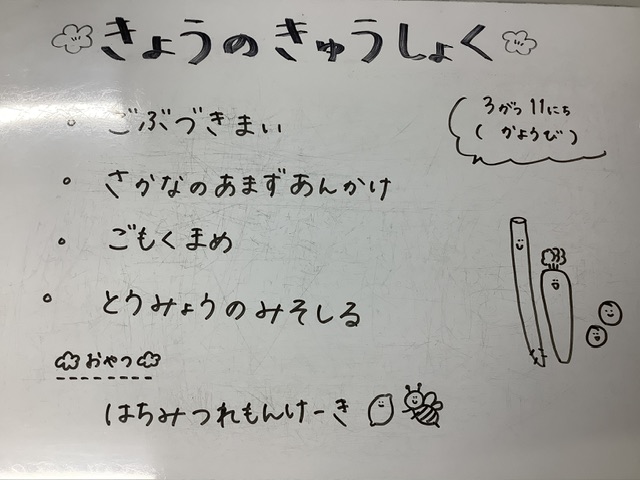 きょうのきゅうしょく
3がつ11にち
(かようび)
。ごぶづきまい
。さかなのあまずあんかけ
。ごもくまめ
。とうみょうのみそしる
おやつ
はちみつれもんけーき